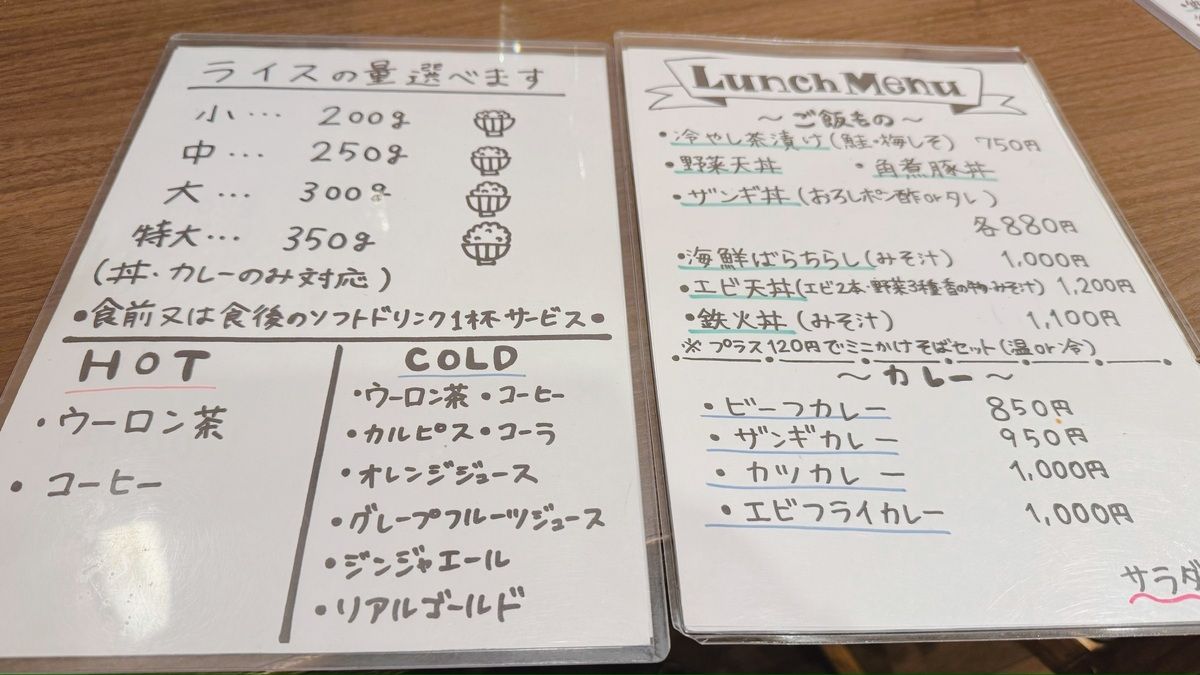 ライスの量選べます
小… 200g
中… 250g
大… 300g
特大… 350g
(丼・カレーのみ対応)
•食前又は食後のソフトドリンク1杯サービス•
HOT
・ウーロン茶
・コーヒー
COLD
・ウーロン茶 ・コーヒー
・カルピス ・コーラ
・オレンジジュース
・グレープフルーツジュース
・ジンジャエール
・リアルゴールド
Lunch Menu
～ご飯もの～
・冷やし茶漬け(鮭・梅しそ) 750円
・野菜天丼 ・角煮豚丼
・ザンギ丼(おろしポン酢orタレ)
各880円
・海鮮ばらちらし(みそ汁) 1,000円
・エビ天丼(エビ2本・野菜3種・香の物・みそ汁) 1,200円
・鉄火丼(みそ汁) 1,100円
※プラス120円でミニかけそばセット(温or冷)
～カレー～
・ビーフカレー 850円
・ザンギカレー 950円
・カツカレー 1,000円
・エビフライカレー 1,000円
サラダ